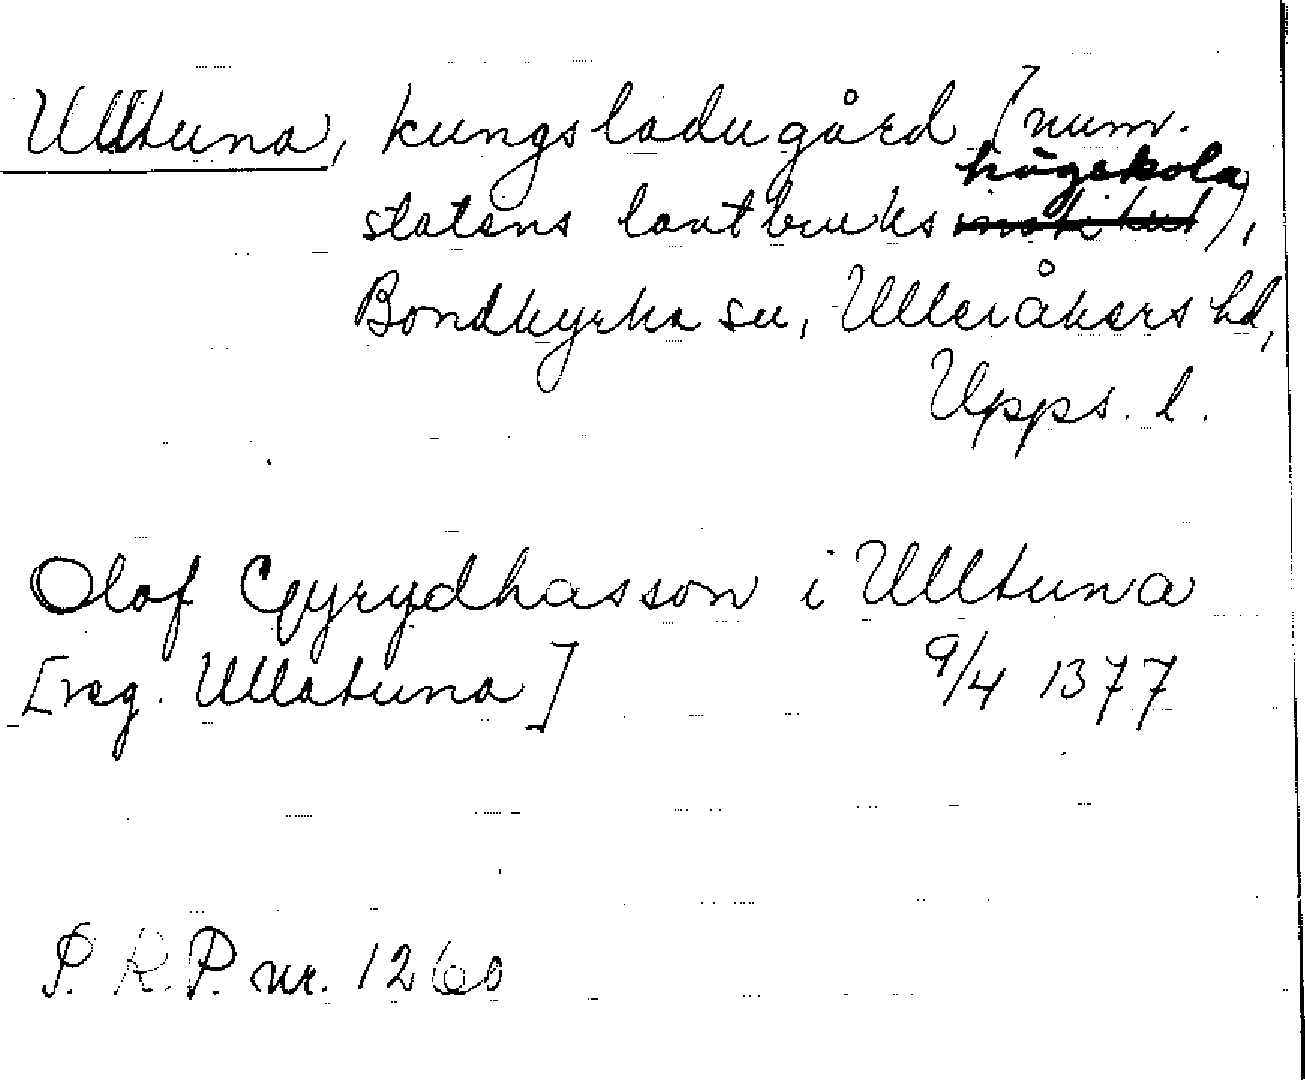 Ulltuna, kungsladugård (num.
högskola
statens lantbruks institut),
Bondkyrka sn, Ulleråkers hd,
Upps. l.
Olof Gyrydhasson i Ulltuna
[reg. Ullatuna] 9/4 1377
P. R. P. nr. 1260